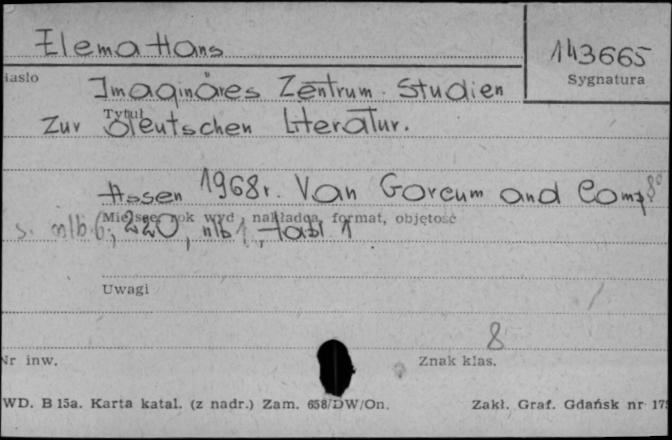 Elema Hans
143665
iasło
Sygnatura
Imaginäres Zentrum. Studien
Tytuł
Zur deutschen Literatur.
Assen 1968r. Van Gorcum and Comp 8°
Miejsce, rok wyd., nakładca, format, objętość
s. nlb 6, 220, nlb 1, tabl 1
Uwagi
8
Nr inw.
Znak klas.
WD. B 15a. Karta katal. (z nadr.) Zam. 658/DW/On.
Zakł. Graf. Gdańsk nr 175